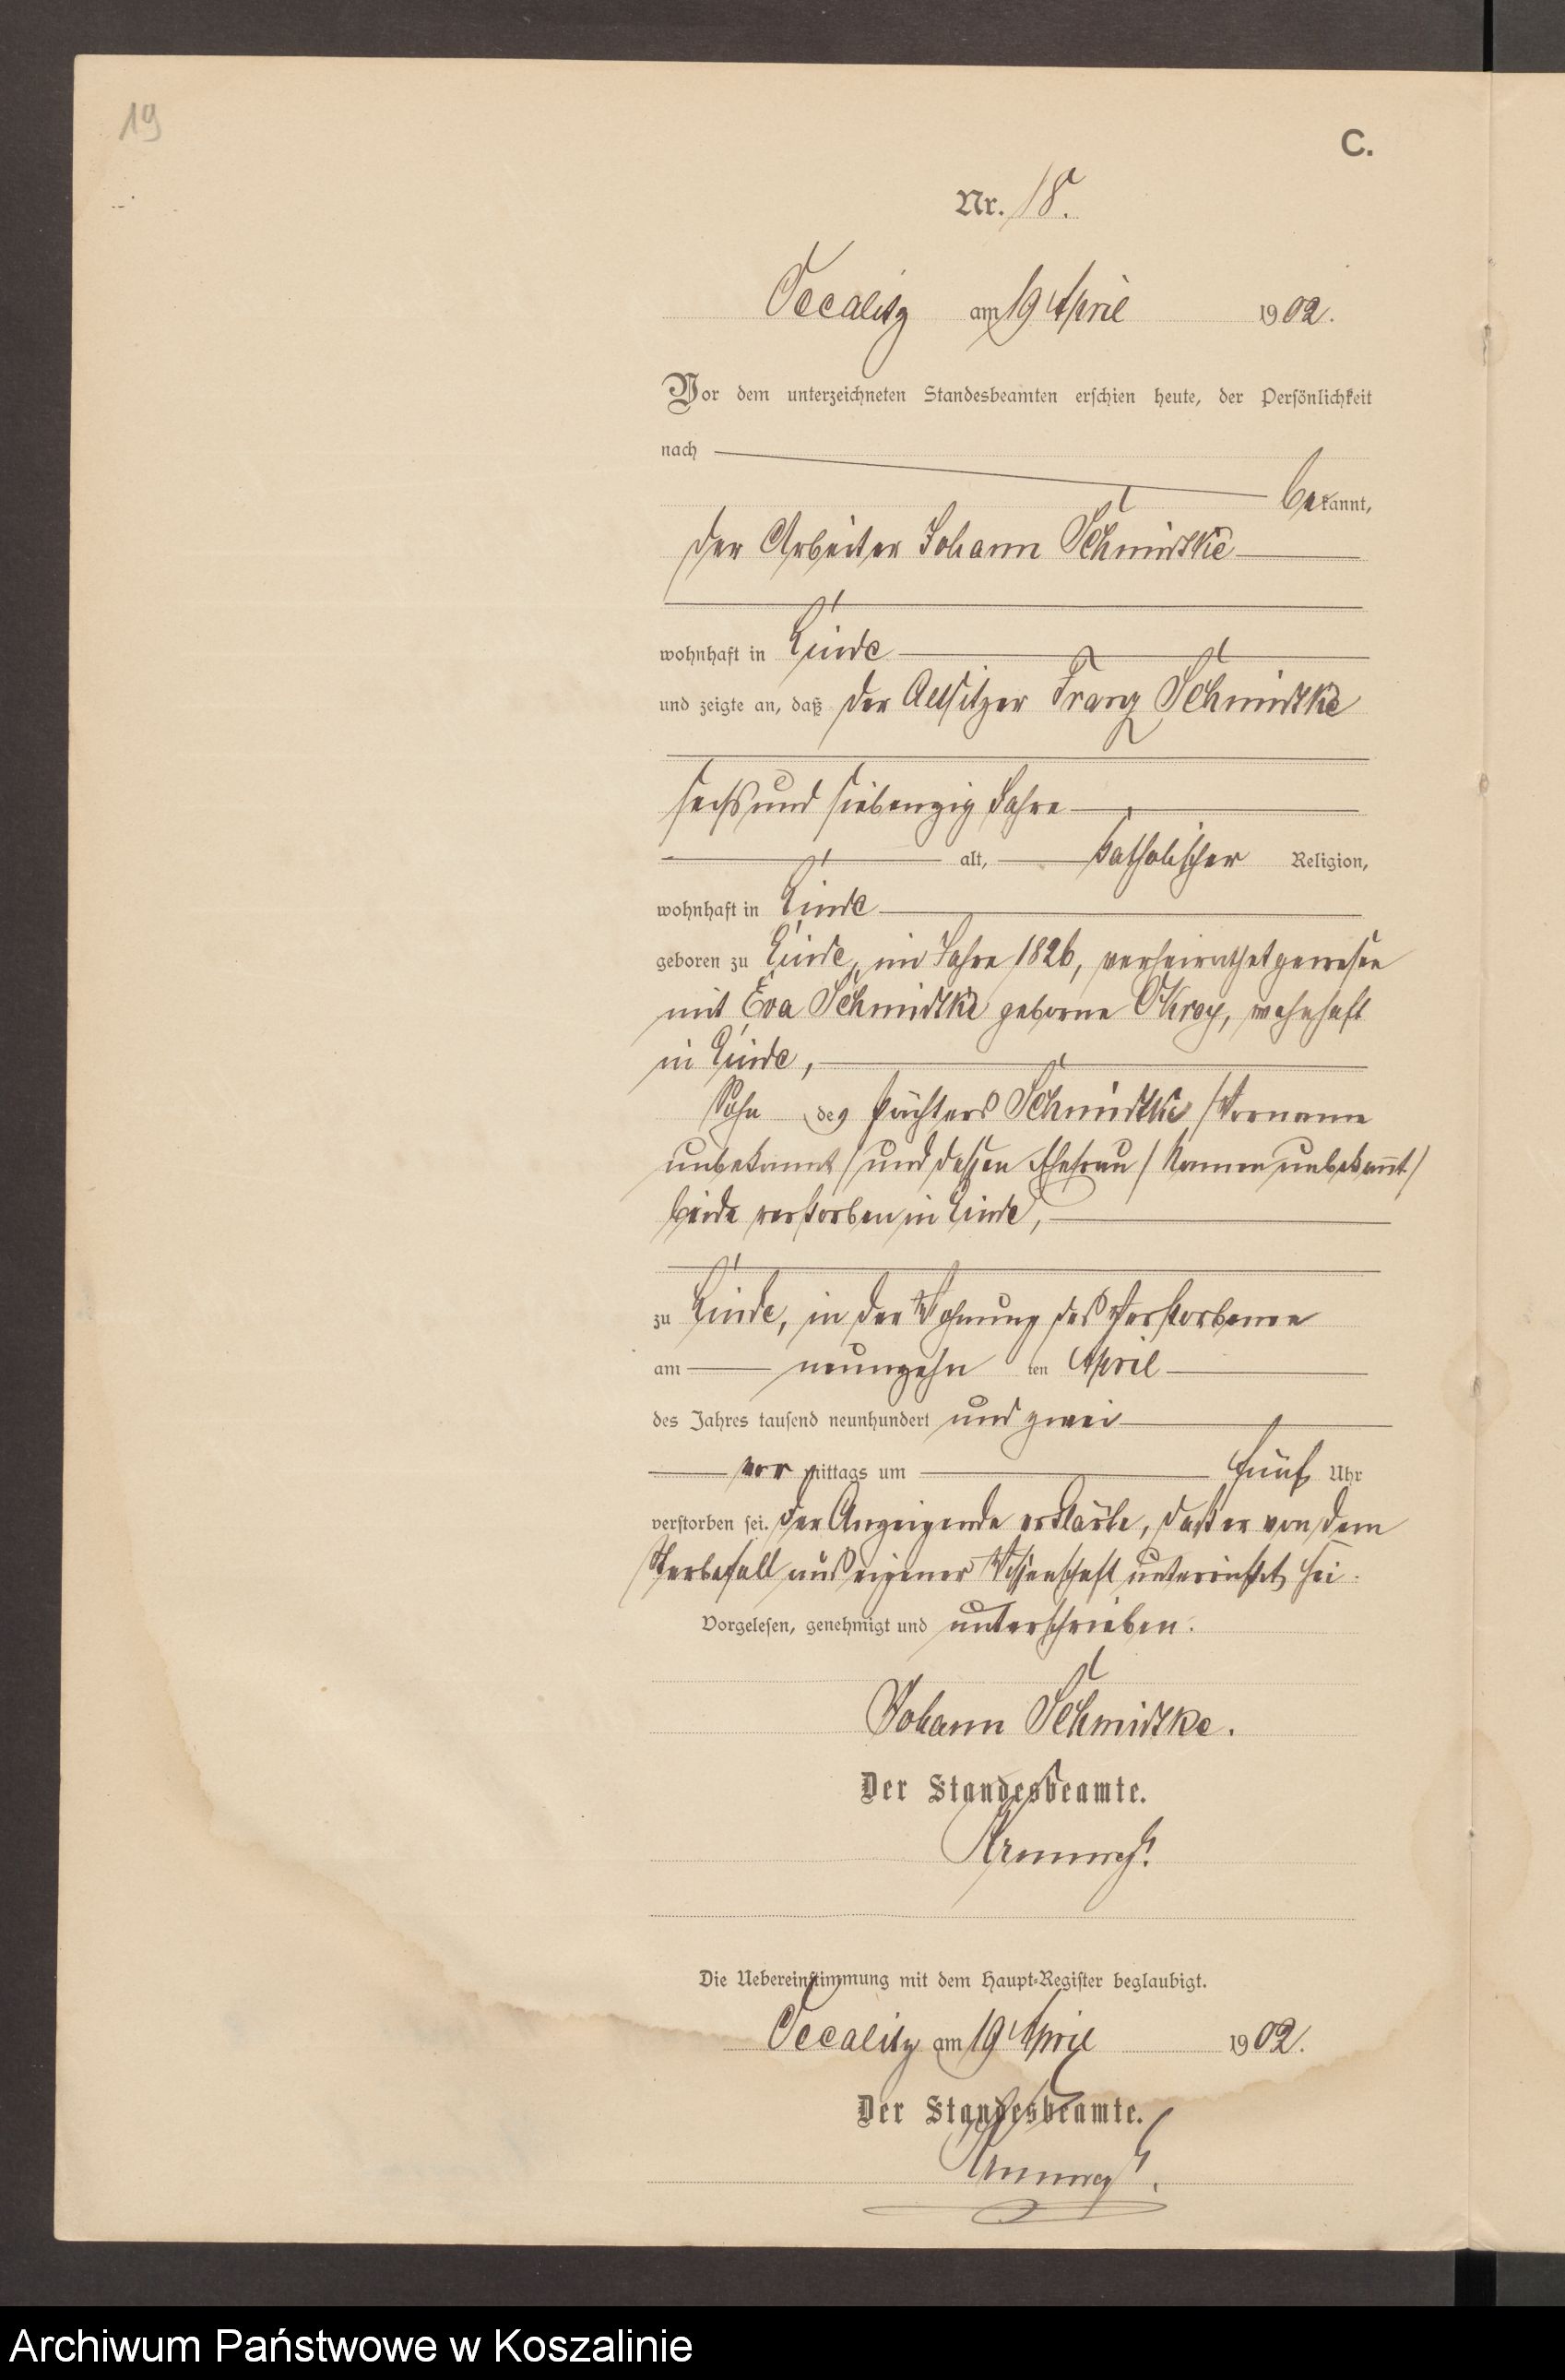 19
C.
Nr. 18.
am 19 April 1902.
Vor dem unterzeichneten Standesbeamten erschien heute, der Persönlichkeit
nach
bekannt,
der Arbeiter Johann Schmidtke
wohnhaft in Linde
und zeigte an, daß der Altsitzer Franz Schmidtke
sechs und siebenzig Jahre
alt, katholischer Religion,
wohnhaft in Linde
geboren zu Linde, im Jahre 1826, verheirathet gewesen
mit Eva Schmidtke geborne Okroy, wohnhaft
in Linde,
Sohn des Pächters Schmidtke /Vorname
unbekannt/ und dessen Ehefrau /Namen unbekannt/
beide verstorben in Linde,
zu Linde, in der Wohnung des Verstorbenen
am neunzehn ten April
des Jahres tausend neunhundert und zwei
vor mittags um fünf Uhr
verstorben sei. Der Anzeigende erklärte, daß er von dem
Sterbefall aus eigener Wissenschaft unterrichtet sei.
Vorgelesen, genehmigt und unterschrieben.
Johann Schmidtke.
Der Standesbeamte.
Die Uebereinstimmung mit dem Haupt-Register beglaubigt.
am 19 April 1902.
Der Standesbeamte.
Archiwum Państwowe w Koszalinie